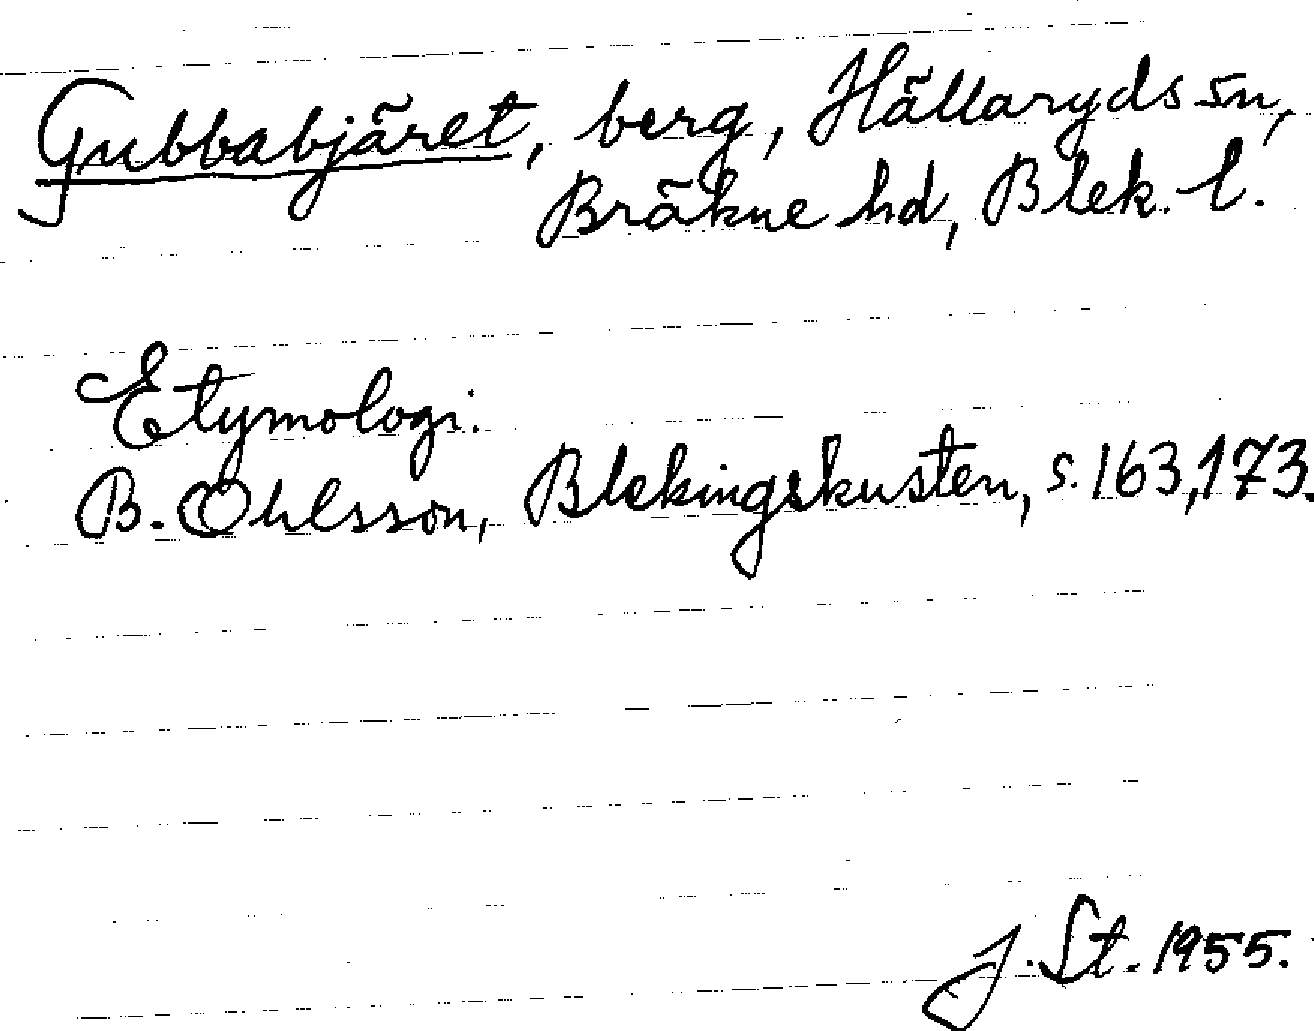 Gubbabjäret, berg, Hällaryds sn,
Bräkne hd, Blek. l.
Etymologi:
B. Ohlsson, Blekingskusten, s. 163, 173.
J. St. 1955.